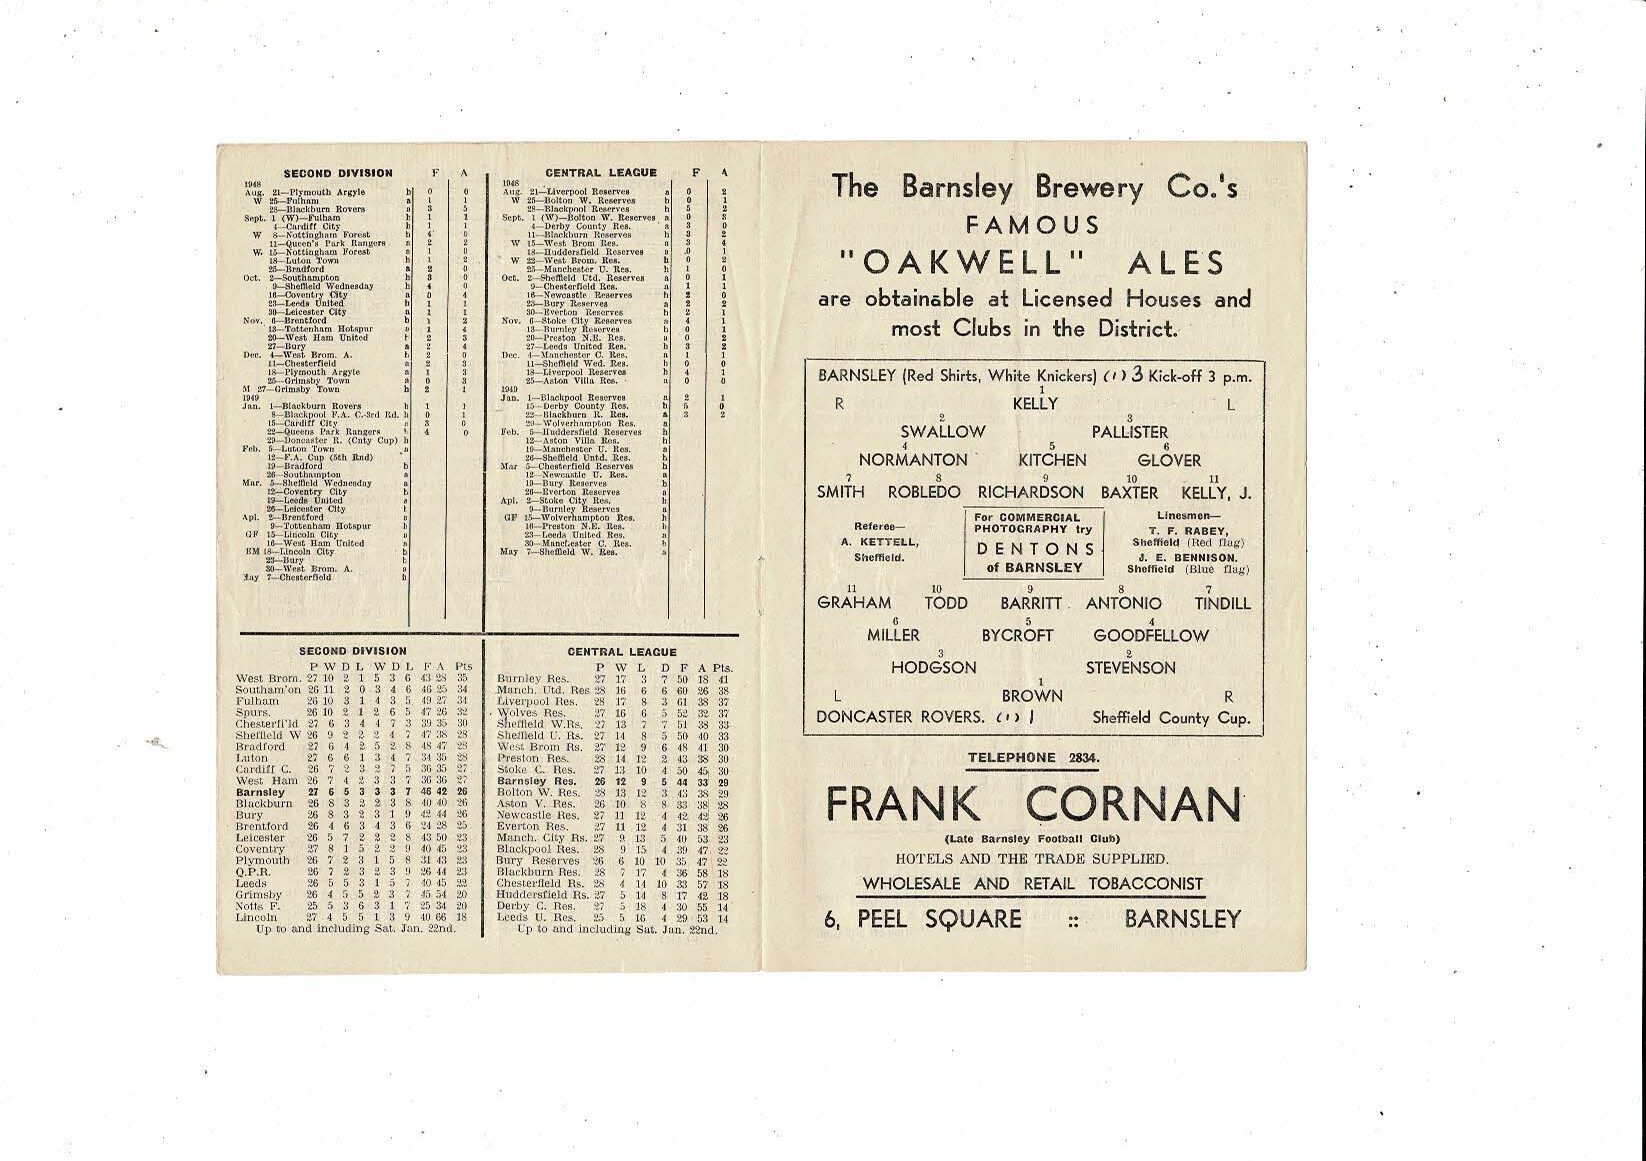 SECOND DIVISION F A
1948
Aug. 21—Plymouth Argyle h 0 0
W 25—Fulham a 1 1
28—Blackburn Rovers a 3 5
Sept. 1 (W)—Fulham h 1 1
4—Cardiff City h 1 1
W 8—Nottingham Forest h 4 0
11—Queen's Park Rangers a 2 2
W. 15—Nottingham Forest a 1 0
18—Luton Town h 1 2
25—Bradford a 2 0
Oct. 2—Southampton h 3 0
9—Sheffield Wednesday h 4 0
16—Coventry City a 0 4
23—Leeds United h 1 1
30—Leicester City a 1 1
Nov. 6—Brentford h 1 2
13—Tottenham Hotspur a 1 4
20—West Ham United h 2 3
27—Bury a 2 4
Dec. 4—West Brom. A. h 2 0
11—Chesterfield a 2 3
18—Plymouth Argyle a 1 3
25—Grimsby Town a 0 3
M 27—Grimsby Town h 2 1
1949
Jan. 1—Blackburn Rovers h 1 1
8—Blackpool F.A. C.-3rd Rd. h 0 1
15—Cardiff City a 3 0
22—Queens Park Rangers h 4 0
29—Doncaster R. (Cnty Cup) h
Feb. 5—Luton Town a
12—F.A. Cup (5th Rnd)
19—Bradford h
26—Southampton a
Mar. 5—Sheffield Wednesday a
12—Coventry City h
19—Leeds United a
26—Leicester City h
Apl. 2—Brentford a
9—Tottenham Hotspur h
GF 15—Lincoln City a
16—West Ham United a
EM 18—Lincoln City h
23—Bury h
30—West Brom. A. a
May 7—Chesterfield h
CENTRAL LEAGUE F A
1948
Aug. 21—Liverpool Reserves a 0 2
W 25—Bolton W. Reserves h 0 1
28—Blackpool Reserves h 5 2
Sept. 1 (W)—Bolton W. Reserves a 0 3
4—Derby County Res. a 3 0
11—Blackburn Reserves h 3 2
W 15—West Brom Res. a 3 4
18—Huddersfield Reserves a 0 1
W 22—West Brom. Res. h 0 2
25—Manchester U. Res. h 1 0
Oct. 2—Sheffield Utd. Reserves a 0 1
9—Chesterfield Res. a 1 1
16—Newcastle Reserves h 2 0
23—Bury Reserves a 2 2
30—Everton Reserves h 2 1
Nov. 6—Stoke City Reserves a 4 1
13—Burnley Reserves h 0 1
20—Preston N.E. Res. a 0 2
27—Leeds United Res. h 3 2
Dec. 4—Manchester C. Res. a 1 1
11—Sheffield Wed. Res. h 0 0
18—Liverpool Reserves h 4 1
25—Aston Villa Res. a 0 0
1949
Jan. 1—Blackpool Reserves a 2 1
15—Derby County Res. h 5 0
22—Blackburn R. Res. a 3 2
29—Wolverhampton Res. a
Feb. 5—Huddersfield Reserves h
12—Aston Villa Res. h
19—Manchester U. Res. a
26—Sheffield Untd. Res. h
Mar 5—Chesterfield Reserves h
12—Newcastle U. Res. a
19—Bury Reserves h
26—Everton Reserves a
Apl. 2—Stoke City Res. h
9—Burnley Reserves a
GF 15—Wolverhampton Res. h
16—Preston N.E. Res. h
23—Leeds United Res. a
30—Manchester C. Res. h
May 7—Sheffield W. Res. a
SECOND DIVISION
P W D L W D L F A Pts
West Brom. 27 10 2 1 5 3 6 43 28 35
Southam'on 26 11 2 0 3 4 6 46 25 34
Fulham 26 10 3 1 4 3 5 49 27 34
Spurs. 26 10 2 1 2 6 5 47 26 32
Chesterfi'ld 27 6 3 4 4 7 3 39 35 30
Sheffield W 26 9 2 2 2 4 7 47 38 28
Bradford 27 6 4 2 5 2 8 48 47 28
Luton 27 6 6 1 3 4 7 34 35 28
Cardiff C. 26 7 2 3 2 7 5 36 35 27
West Ham 26 7 4 2 3 3 7 36 36 27
Barnsley 27 6 5 3 3 3 7 46 42 26
Blackburn 26 8 3 2 2 3 8 40 40 26
Bury 26 8 3 2 3 1 9 42 44 26
Brentford 26 4 6 3 4 3 6 24 28 25
Leicester 26 5 7 2 2 2 8 43 50 23
Coventry 27 8 1 5 2 2 9 40 45 23
Plymouth 26 7 2 3 1 5 8 31 43 23
Q.P.R. 26 7 2 3 2 3 9 26 44 23
Leeds 26 5 5 3 1 5 7 40 45 22
Grimsby 26 4 5 5 2 3 7 45 54 20
Notts F. 25 5 3 6 3 1 7 25 34 20
Lincoln 27 4 5 5 1 3 9 40 66 18
Up to and including Sat. Jan. 22nd.
CENTRAL LEAGUE
P W L D F A Pts.
Burnley Res. 27 17 3 7 50 18 41
Manch. Utd. Res 28 16 6 6 60 26 38
Liverpool Res. 28 17 8 3 61 38 37
Wolves Res. 27 16 6 5 52 32 37
Sheffield W.Rs. 27 13 7 7 51 38 33
Sheffield U. Rs. 27 14 8 5 50 40 33
West Brom Rs. 27 12 9 6 48 41 30
Preston Res. 28 14 12 2 43 38 30
Stoke C. Res. 27 13 10 4 50 45 30
Barnsley Res. 26 12 9 5 44 33 29
Bolton W. Res. 28 13 12 3 43 38 29
Aston V. Res. 26 10 8 8 33 38 28
Newcastle Res. 27 11 12 4 42 42 26
Everton Res. 27 11 12 4 31 38 26
Manch. City Rs. 27 9 13 5 40 53 23
Blackpool Res. 28 9 15 4 39 47 22
Bury Reserves 26 6 10 10 35 47 22
Blackburn Res. 28 7 17 4 36 58 18
Chesterfield Rs. 28 4 14 10 33 57 18
Huddersfield Rs. 27 5 14 8 17 42 18
Derby C. Res. 27 5 18 4 30 55 14
Leeds U. Res. 25 5 16 4 29 53 14
Up to and including Sat. Jan. 22nd.
The Barnsley Brewery Co.'s
FAMOUS
"OAKWELL" ALES
are obtainable at Licensed Houses and
most Clubs in the District.
BARNSLEY (Red Shirts, White Knickers) (1) 3 Kick-off 3 p.m.
1
R KELLY L
2 3
SWALLOW PALLISTER
4 5 6
NORMANTON KITCHEN GLOVER
7 8 9 10 11
SMITH ROBLEDO RICHARDSON BAXTER KELLY, J.
Referee—
A. KETTELL,
Sheffield.
For COMMERCIAL
PHOTOGRAPHY try
DENTONS
of BARNSLEY
Linesmen—
T. F. RABEY,
Sheffield (Red flag)
J. E. BENNISON,
Sheffield (Blue flag)
11 10 9 8 7
GRAHAM TODD BARRITT ANTONIO TINDILL
6 5 4
MILLER BYCROFT GOODFELLOW
3 2
HODGSON STEVENSON
1
L BROWN R
DONCASTER ROVERS. (1) 1 Sheffield County Cup.
TELEPHONE 2834.
FRANK CORNAN
(Late Barnsley Football Club)
HOTELS AND THE TRADE SUPPLIED.
WHOLESALE AND RETAIL TOBACCONIST
6, PEEL SQUARE :: BARNSLEY